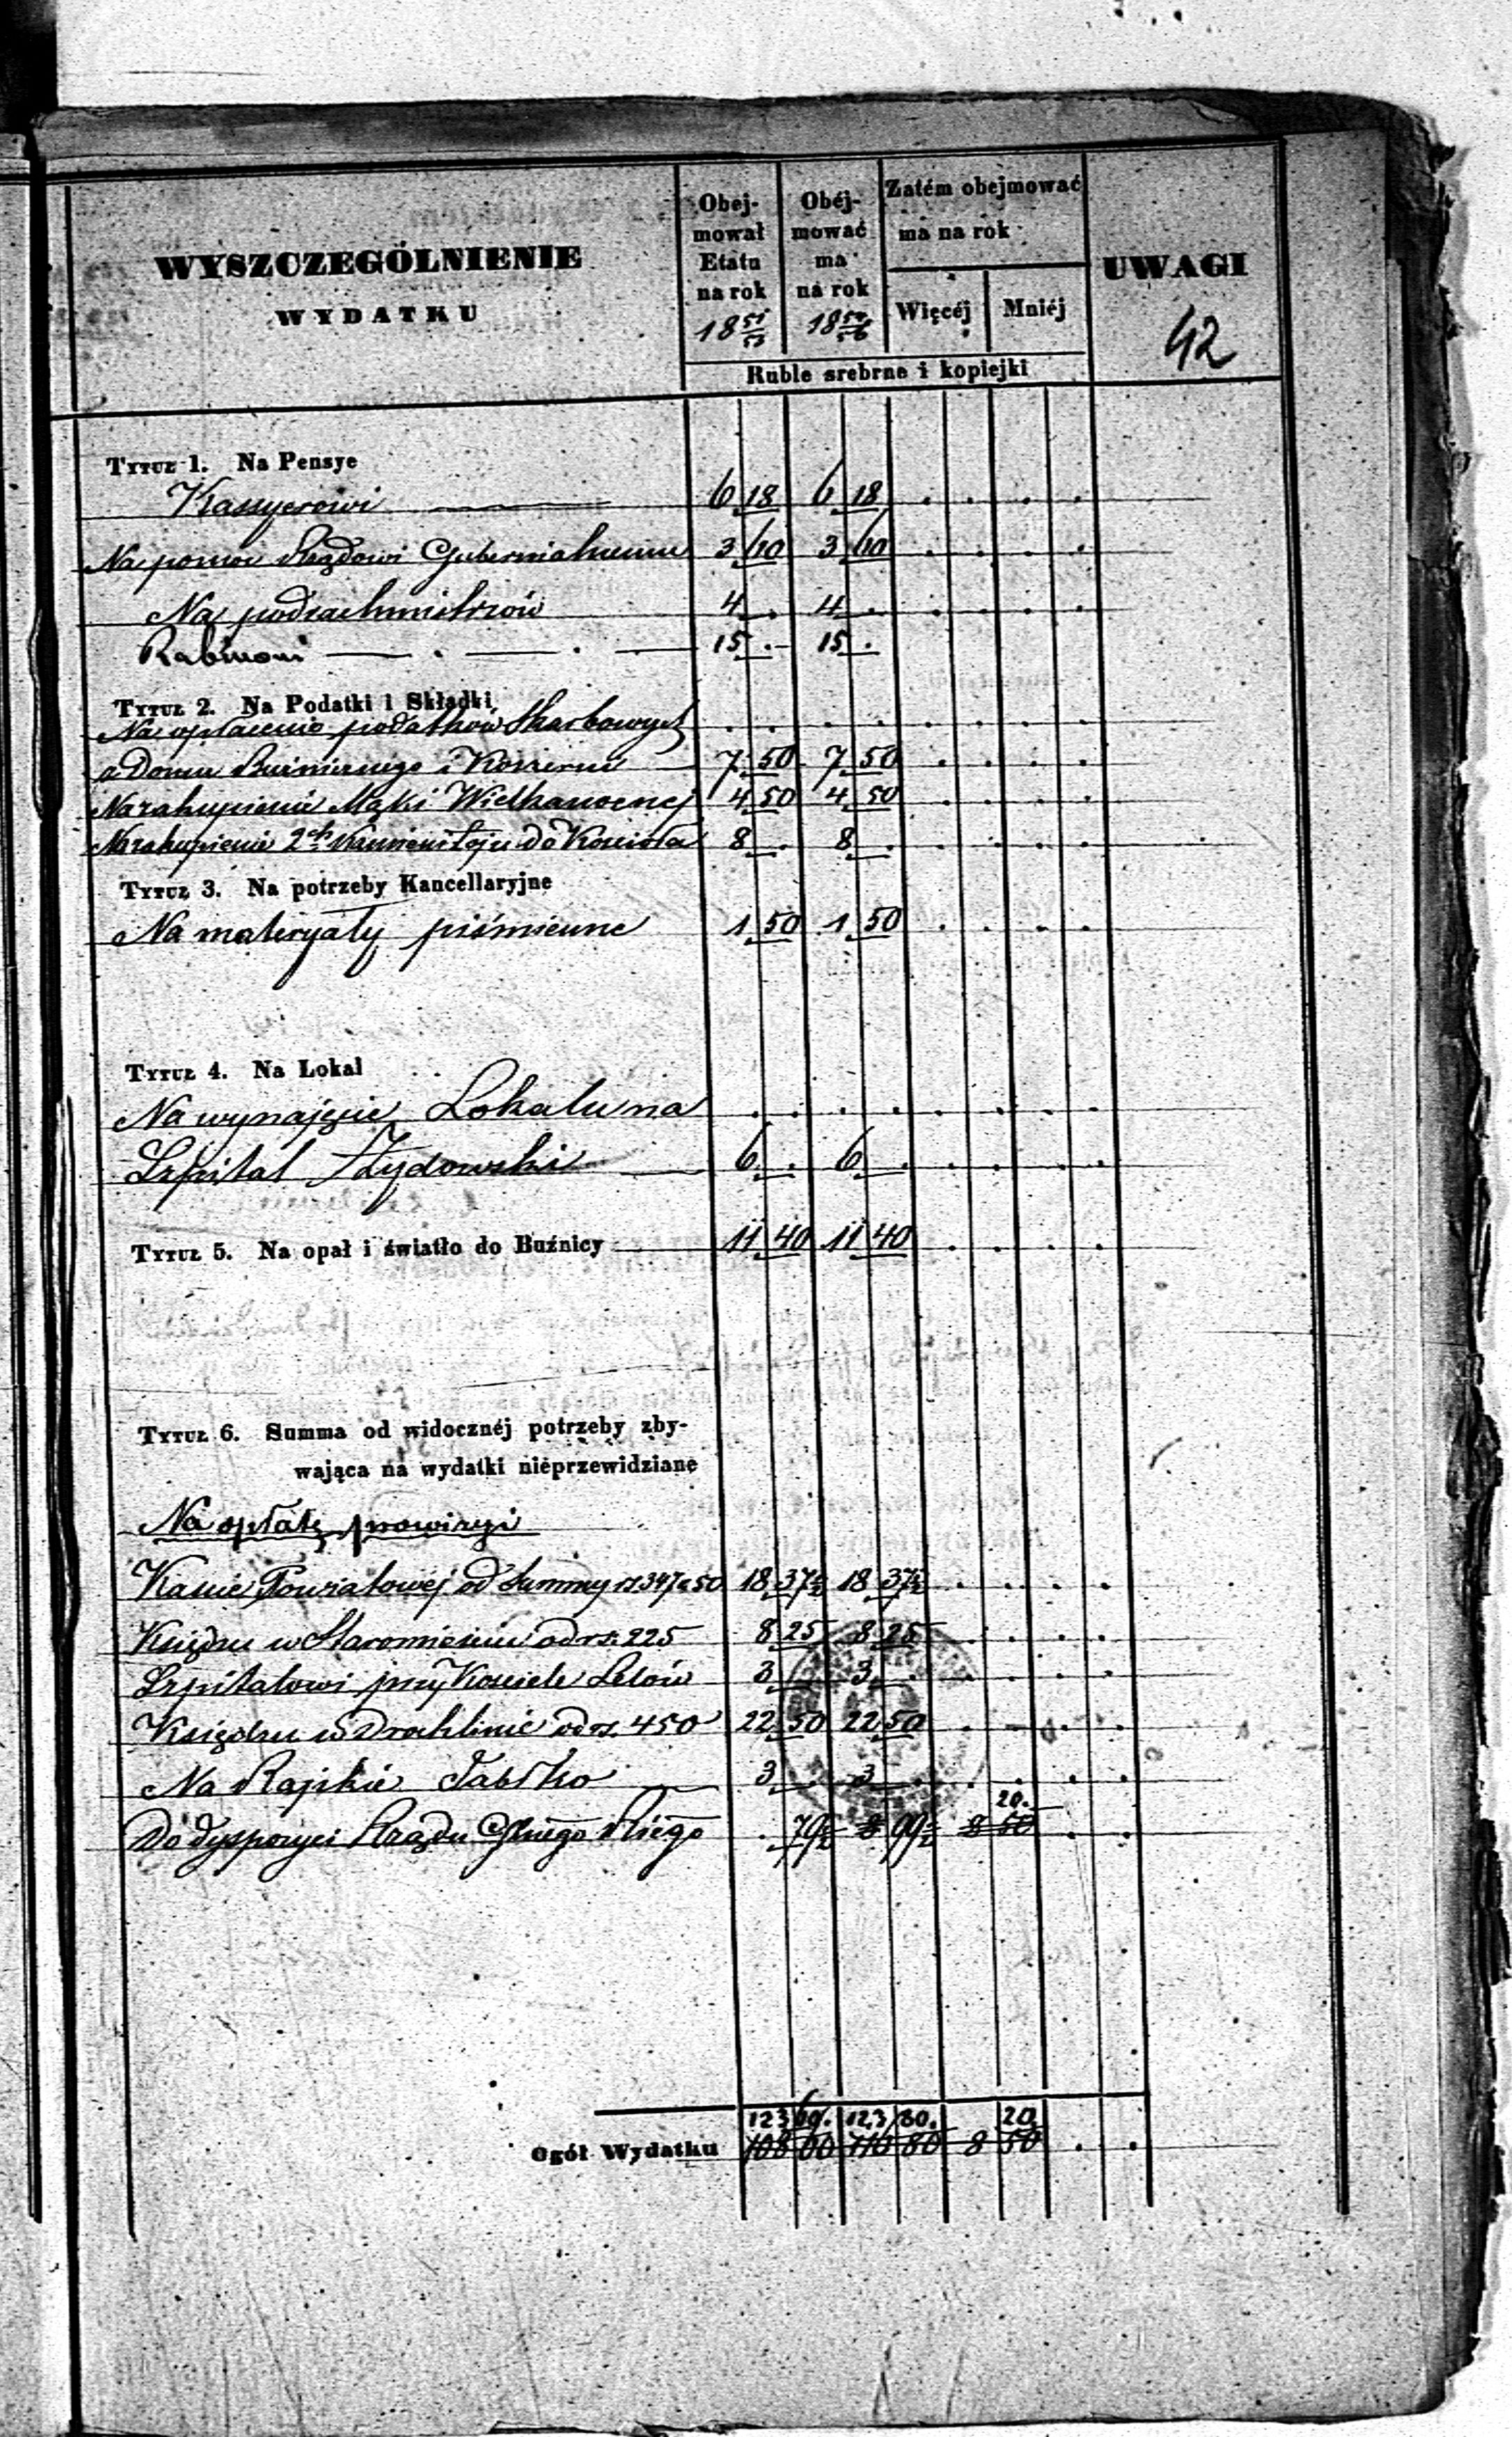 WYSZCZEGÓLNIENIE
WYDATKU
Obej-
mował
Etatu
na rok
18 51/53
Obéj-
mować
ma
na rok
18
Zatém obejmować
ma na rok
Więcéj
Mniéj
UWAGI
42
Ruble srebrne i kopiejki
Tytuł 1. Na Pensye
Kassyerowi 6 18 6 18
Na pomoc Rządowi Gubernialnemu 3 60 3 60
Na podrachmistrzów 4 . 4 .
Rabinowi 15 . 15 .
Tytuł 2. Na Podatki i Składki
Na opłacenie podatków Skarbowych
z Domu Bużniczego i 7 50 7 50
Na zakupienie Mąki Wielkanocnej 4 50 4 50
Na zakupienie 2ch Kamieni Łoju do Kościoła 8 . 8 .
Tytuł 3. Na potrzeby Kancellaryjne
Na materyały piśmienne 1 50 1 50
Tytuł 4. Na Lokal
Na wynajęcie Lokalu na
Szpital Żydowski 6 . 6 .
Tytuł 5. Na opał i światło do Buźnicy 11 40 11 40
Tytuł 6. Summa od widocznéj potrzeby zby-
wająca na wydatki nieprzewidziane
Na opłatę prowizyi
Kassie Powiatowej od Summy rs 347 k 50 18 37½ 18 37½
Księdzu w Staromieściu od rs. 225 8 25 8 25
Szpitalowi przy Kościele Lelów 3 . 3 .
Księdzu w Drochlinie od rs. 450 22 50 22 50
Na 3 . 3 .
20.
Do dyspozycyi Rządu 79½ 8 99½ 8 50
123 60. 123 80. 20
Ogół Wydatku 108 60 116 80 8 50